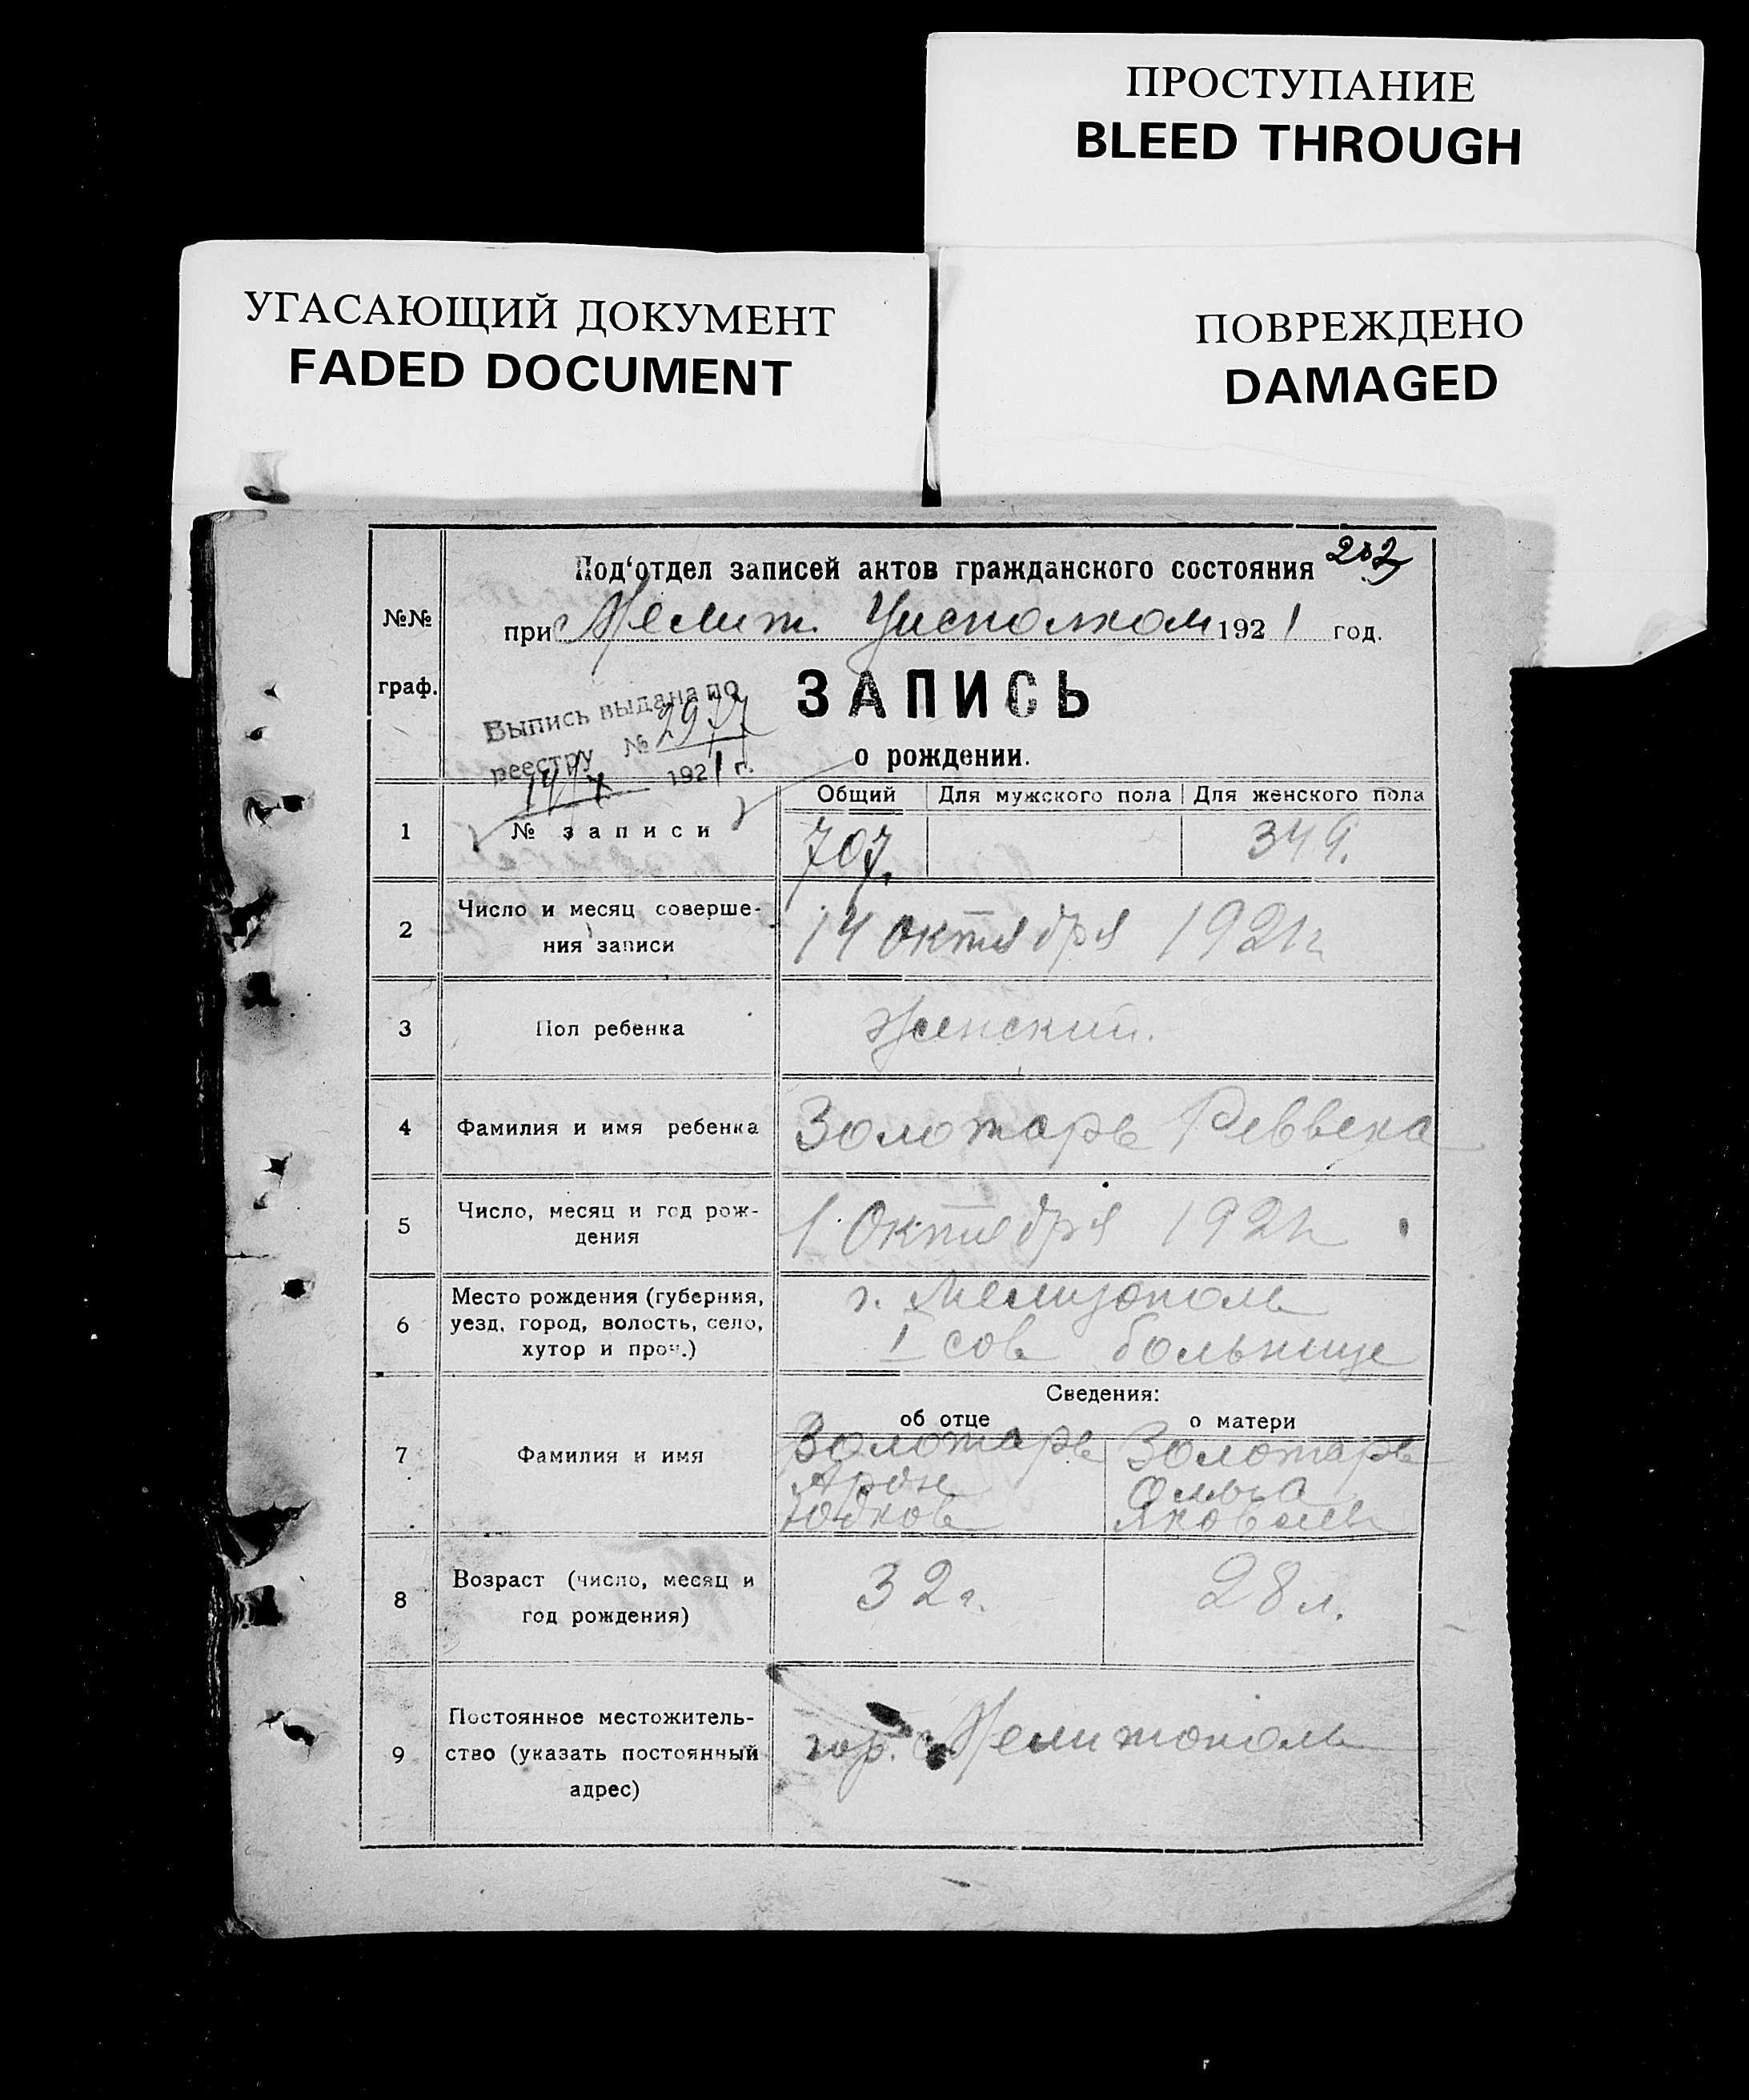 ПРОСТУПАНИЕ
BLEED THROUGH
УГАСАЮЩИЙ ДОКУМЕНТ
FADED DOCUMENT
ПОВРЕЖДЕНО
DAMAGED
Под‘отдел записей актов гражданского состояния
№№ граф.
при Мелит. Уисполком 1921 год.
ЗАПИСЬ
о рождении.
Выпись выдана по
реестру № 2977
14/X 1921 г.
Общий Для мужского пола Для женского пола
1 № записи 707. 349.
2 Число и месяц соверше-
ния записи 14 октября 1921 г
3 Пол ребенка Женский.
4 Фамилия и имя ребенка Золотарь Реввека
5 Число, месяц и год рож-
дения 1 Октября 1921
6 Место рождения (губерния,
уезд, город, волость, село,
хутор и проч.)
г. Мелитополь
I сов больнице
Сведения:
об отце о матери
7 Фамилия и имя
Золотарь Золотарь
Арон Ольга
Юдков Яковлев
8 Возраст (число, месяц и
год рождения) 32 г. 28 л.
9 Постоянное местожитель-
ство (указать постоянный
адрес)
гор. Мелитополь